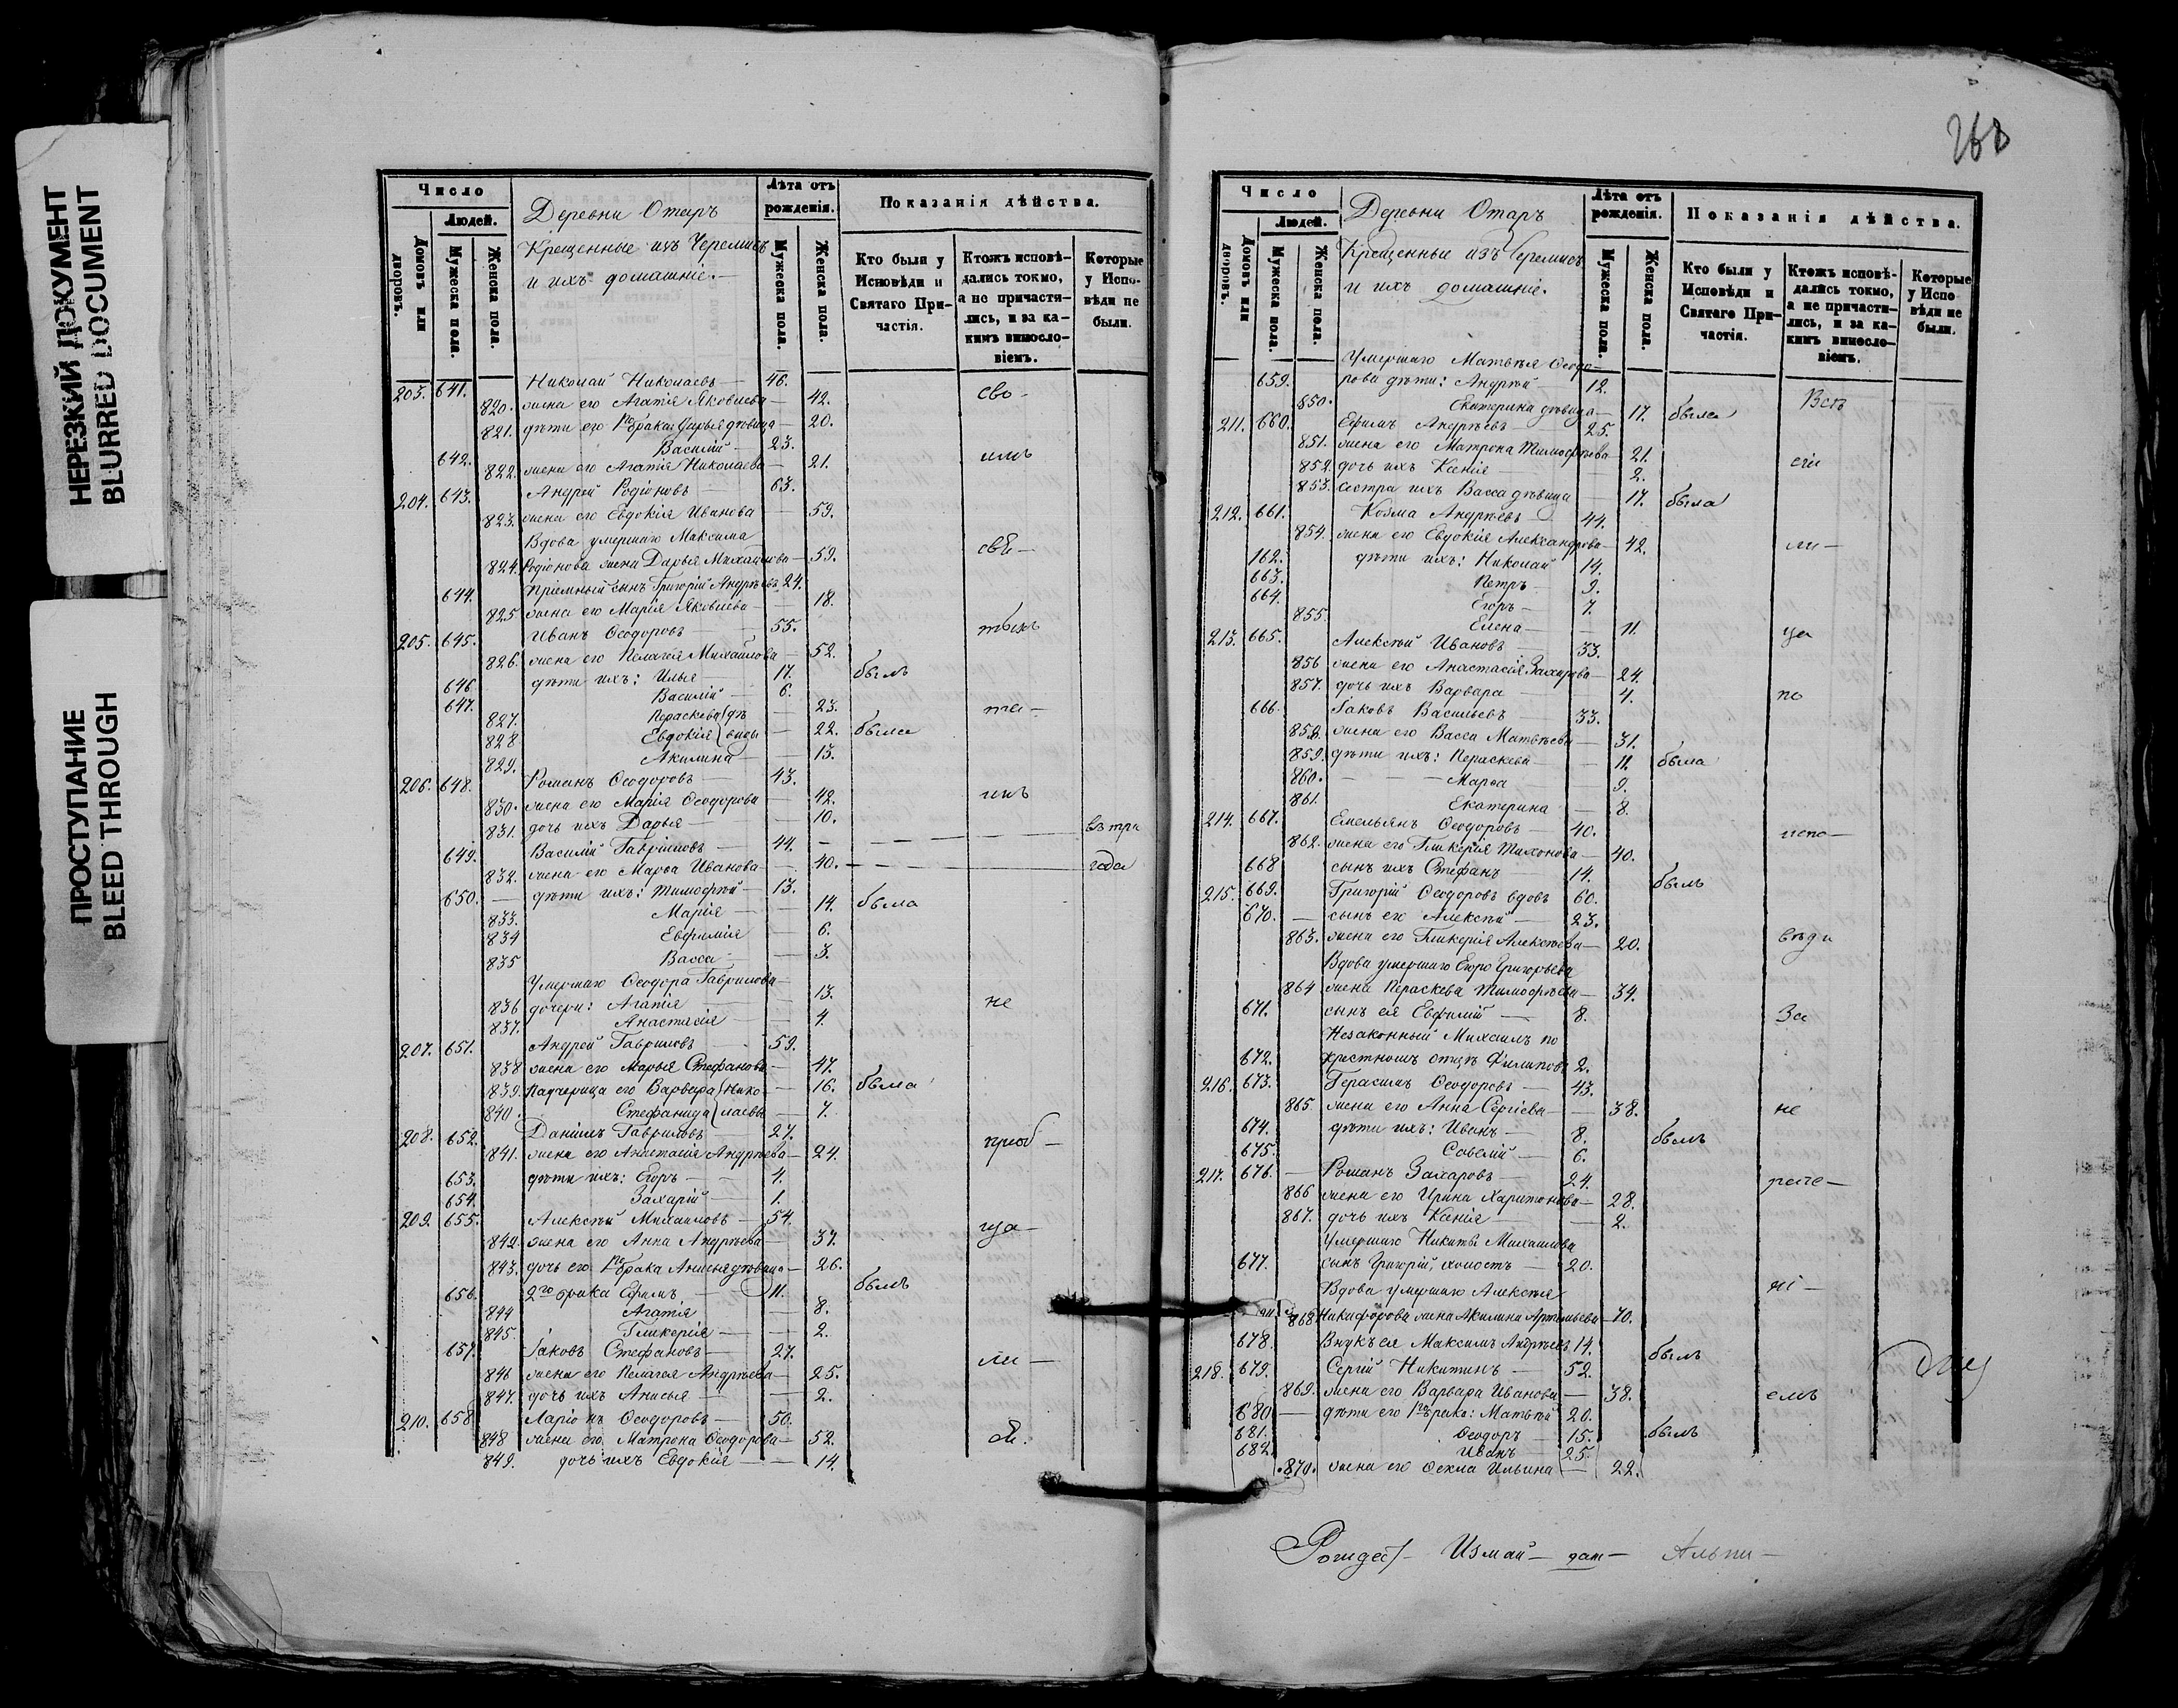 268
НЕРЕЗКИЙ ДОКУМЕНТ
BLURRED DOCUMENT
ПРОСТУПАНИЕ
BLEED THROUGH
Число
Людей.
Домовъ или дворовъ.
Мужеска пола.
Женска пола.
Деревни Отаръ
Крещенные изъ Черемисъ
и ихъ домашніе.
Лѣта отъ рожденія.
Мужеска пола.
Женска пола.
Показанія дѣйства.
Кто были у Исповѣди и Святаго Причастія.
Ктожъ исповѣдались токмо, а не причастились, и за какимъ винословіемъ.
Которые у Исповѣди не были.
203. 641. Николай Николаевъ — 46.
820. жена его Агатія Яковлева — 42. сво-
821. дѣти его 1го брака: Дарья дѣвица — 20.
642. Василій — 23.
822. жена его Агатія Николаева — 21. имъ
204. 643. Андрей Родіоновъ — 63.
823. жена его Евдокія Иванова — 59.
Вдова умершаго Максима
824. Родіонова жена Дарья Михайлова — 59.
644. Пріемный сынъ Григорій Андреевъ 24.
825 жена его Марія Яковлева — 18.
205. 645. Иванъ Ѳеодоровъ — 55.
826. жена его Пелагея Михайлова — 52.
646. дѣти ихъ: Илья — 17. былъ
647. Василій — 6.
827. Параскева дѣ — 23.
828 Евдокія вицы — 22. была
829. Акилина — 13.
206. 648. Романъ Ѳеодоровъ — 43.
830. жена его Марія Ѳеодорова — 42.
831. дочь ихъ Дарья — 10.
649. Василій Гавриловъ — 44. въ три
832. жена его Марѳа Иванова — 40. года
650. — дѣти ихъ: Тимофѣй — 13.
833. Марія — 14. была
834 Евфимія — 6.
835 Васса — 3.
Умершаго Ѳеодора Гаврилова
836 дочери: Агатія — 13. не
837. Анастасія — 4.
207. 651. Андрей Гавриловъ — 59.
838 жена его Марья Стефанова — 47.
839. Падчерица его Варвара Нико — 16. была
840. Стефанида лаевы — 7.
208. 652. Даніилъ Гавриловъ — 27.
841. жена его Анастасія Андрѣева — 24. приоб-
653. дѣти ихъ: Егоръ — 4.
654. Захарій — 1.
209. 655. Алексѣй Михаиловъ — 54.
842. жена его Анна Андрѣева — 37. ща-
843. дочь его 1го брака Анисья дѣвица — 26.
656. 2го брака Ефимъ — 11. былъ
844 Агатія — 8.
845. Гликерія — 2.
657. Іаковъ Стефановъ — 27.
846 жена его Пелагея Андрѣева — 25. ли-
847. дочь ихъ Анисья — 2.
210. 658 Ларіонъ Ѳеодоровъ — 50.
848 жена его Матрона Ѳеодорова — 52.
849. дочь ихъ Евдокія — 14.
Число
Людей.
Домовъ или дворовъ.
Мужеска пола.
Женска пола.
Деревни Отаръ
Крещенные изъ Черемисъ
и ихъ домашніе.
Лѣта отъ рожденія.
Мужеска пола.
Женска пола.
Показанія дѣйства.
Кто были у Исповѣди и Святаго Причастія.
Ктожъ исповѣдались токмо, а не причастились, и за какимъ винословіемъ.
Которые у Исповѣди не были.
Умершаго Матвѣя Ѳеодо-
659. рова дѣти: Андрѣй — 12.
850. Екатерина дѣвица — 17. была Всѣ
211. 660. Ефимъ Андрѣевъ — 25.
851. жена его Матрона Тимофѣева 21. сіи
852. дочь ихъ Ксенія — 2.
853. сестра ихъ Васса дѣвица — 17. была
212. 661. Козма Андрѣевъ — 44.
854. жена его Евдокія Александрова — 42. ли-
162. дѣти ихъ: Николай 14.
663. Петръ 9.
664. Егоръ — 7.
855. Елена — 11. ца
213. 665. Алексѣй Ивановъ — 33.
856 жена его Анастасія Захарова — 24.
857. дочь ихъ Варвара — 4. по
666. Іаковъ Васильевъ — 33.
858. жена его Васса Матвѣева — 31.
859. дѣти ихъ: Параскева — 11. была
860. Марѳа — 9.
861. Екатерина — 8.
214. 667. Емельянъ Ѳеодоровъ — 40. испо-
862. жена его Гликерія Тихонова — 40.
668 сынъ ихъ Стефанъ — 14. былъ
215. 669. Григорій Ѳеодоровъ вдовъ 60.
670. — сынъ его Алексѣй — 23.
863. жена его Гликерія Алексѣева — 20. вѣди
Вдова умершаго Егора Григорьева
864 жена Параскева Тимофѣева — 34.
671. сынъ ея Евфимій — 8. За
Незаконный Михаилъ по
672. крестному отцѣ Филиповъ 2.
216. 673. Герасимъ Ѳеодоровъ — 43.
865 жена его Анна Сергіева — 38. не
674. дѣти ихъ: Иванъ — 8. былъ
675. Савелій — 6.
217. 676. — Романъ Захаровъ — 24.
866 жена его Ирина Харитонова — 28.
867. дочь ихъ Ксенія — 2.
Умершаго Никиты Михаилова
677. сынъ Григорій, холостъ — 20.
Вдова умершаго Алексѣя ні-
868 Никифорова жена Акилина Артемьева — 70.
678. Внукъ ея Максимъ Андрѣевъ 14. былъ
218. 679. Сергій Никитинъ — 52.
869. жена его Варвара Иванова — 38. емъ
680 — дѣти его 1го брака: Матвѣй 20.
681. Ѳеодоръ — 15. былъ
682. Иванъ — 25.
870. жена его Ѳекла Ильина — 22.